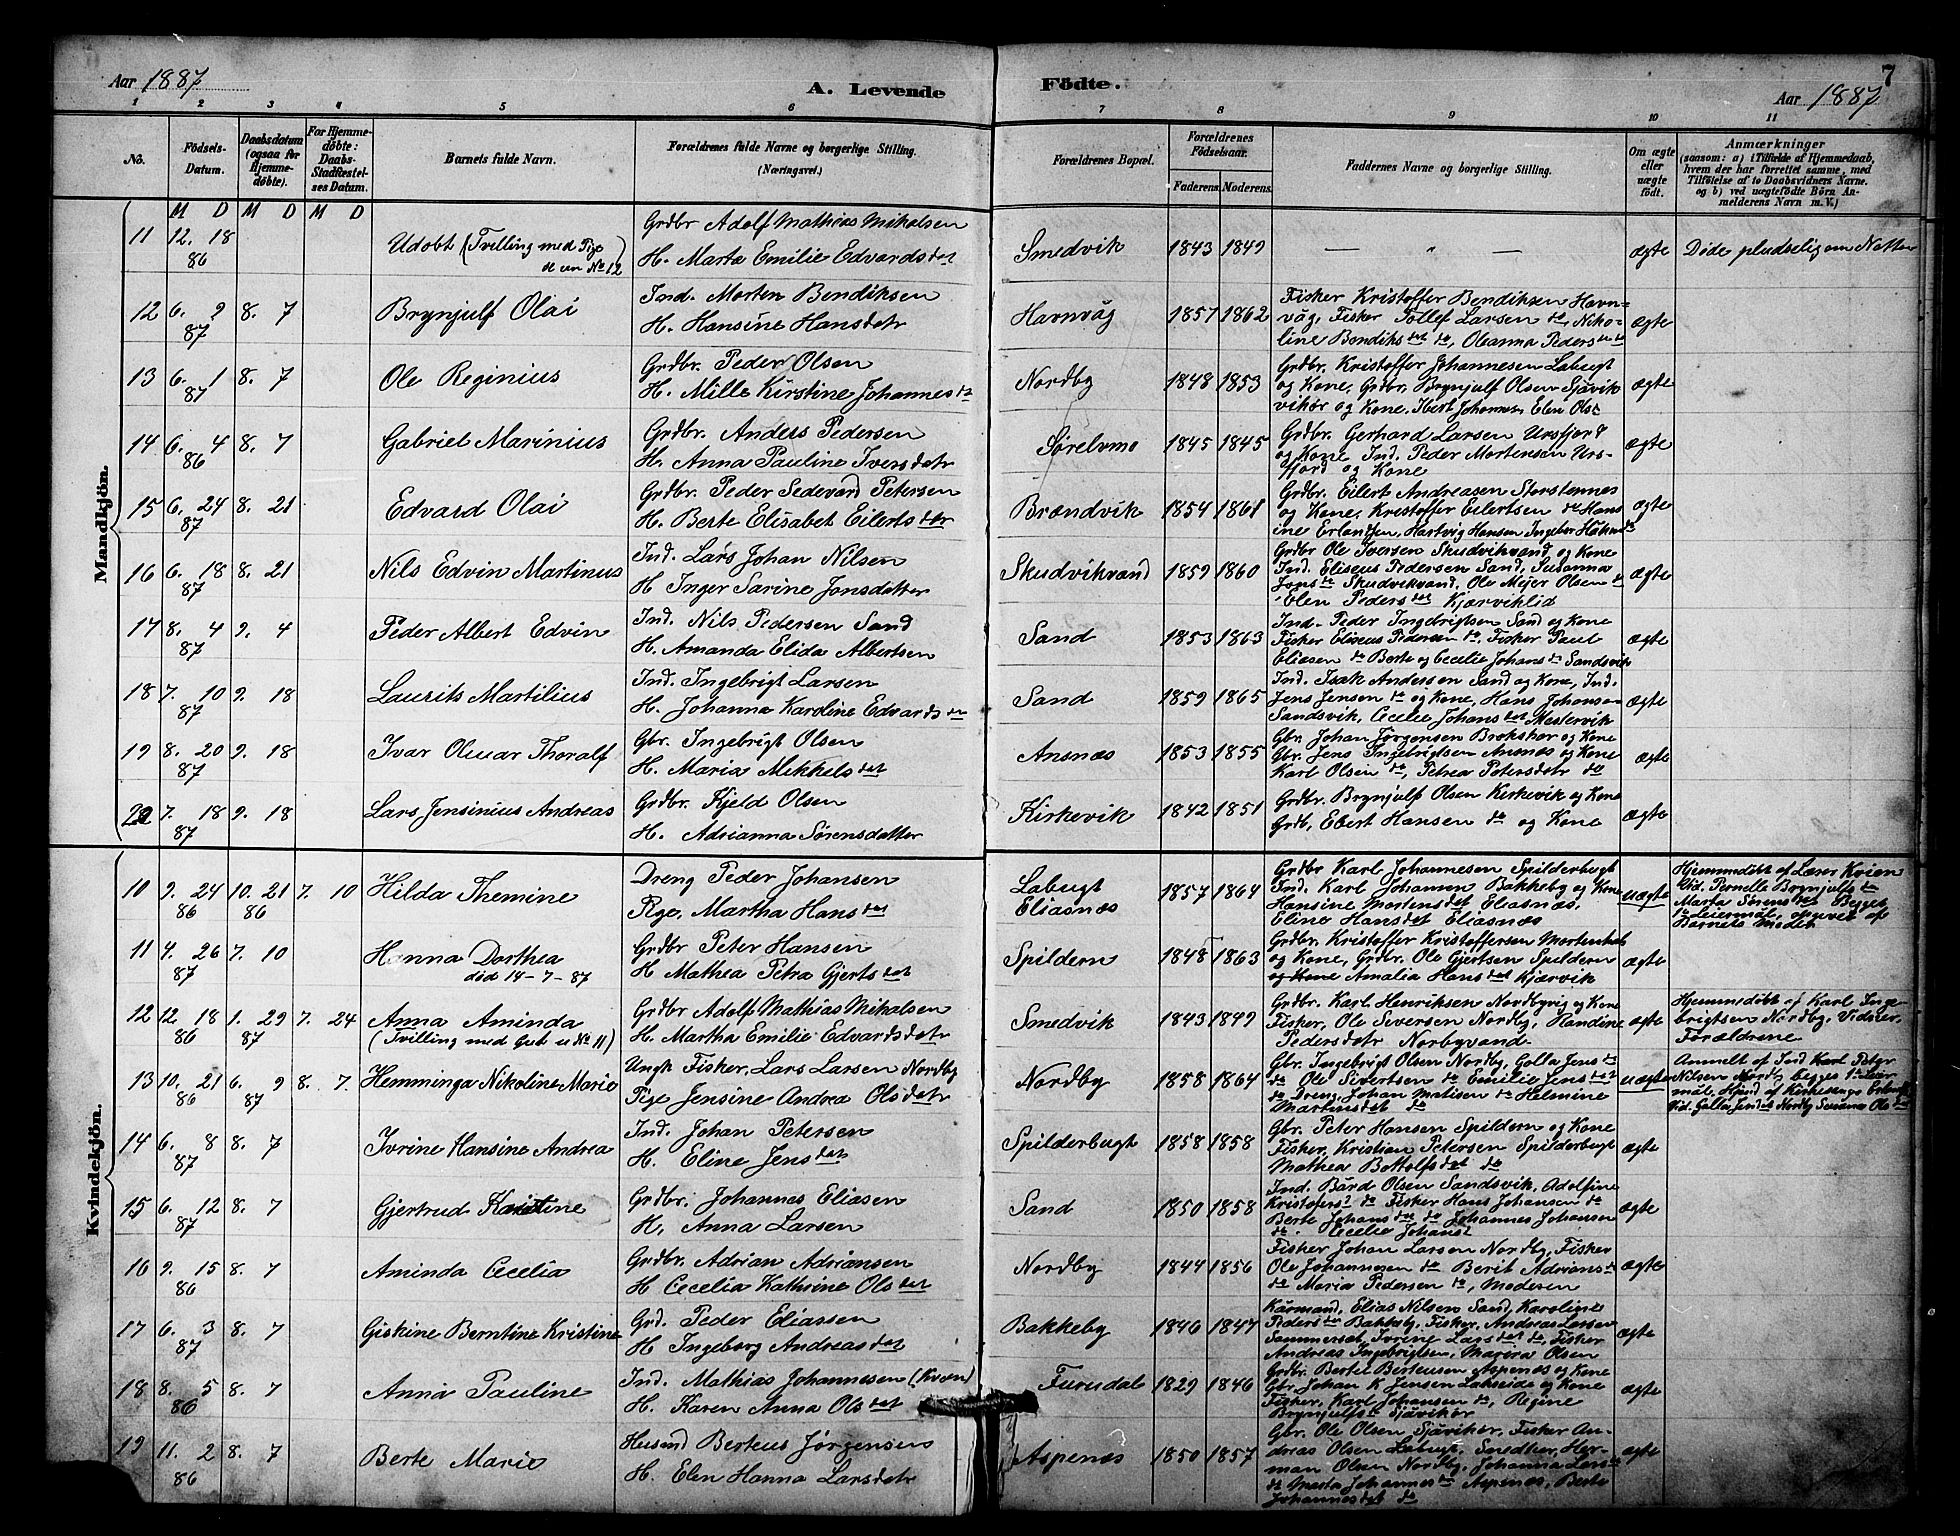 Aar 1887
A. Levende
Födte.
7
Aar 1887
1 2 3 4 5 6 7 8 9 10 11
No.
Födsels-Datum.
Daabsdatum (ogsaa for Hjemmedöbte).
For Hjemmedöbte: Daabs-Stadfæstelses Datum.
Barnets fulde Navn.
Forældrenes fulde Navne og borgerlige Stilling. (Næringsvei.)
Forældrenes Bopæl.
Forældrenes Födselsaar.
Faderens. Moderens.
Faddernes Navne og borgerlige Stilling.
Om ægte eller uægte födt.
Anmærkninger
(saasom: a) i Tilfælde af Hjemmedaab,
hvem der har forrettet samme, med
Tilföielse af to Daabsvidners Navne.
og b) ved uægtefödte Börn Anmelderens Navn m. V.)
M D M D M D
Mandkjön.
11 12. 18 86 Udöbt (Tvilling med Pige
se un No 12)
Grdbr Adolf Mathias Mikalsen
H. Marta Emilie Edvardsdet
Smedvik 1843 1849 — " — ægte Döde pludselig om Natten
12 6. 9 87 8. 7 Brynjulf Olai
Ind. Morten Bendiksen
H. Hansine Hansdatr
Havnvåg 1857 1862
Fisker Kristoffer Bendiksen Havn=
våg, Fisker Tollef Larsen do, Niko=
line Bendiksdet do, Oleanna Peders
ægte
13 6. 1 87 8. 7 Ole Reginius
Grdbr. Peder Olsen
H. Mille Kirstine Johannesdt
Nordby 1848 1853
Grdbr. Kristoffer Johannesen Labugt
og Kone, Grdbr. Brynjulf Olsen Sjåvik
vikør og Kone, Johannes, Elen Ols
ægte
14 6. 4 86 8. 7 Gabriel Marinius
Grdbr. Anders Pedersen
H. Anna Pauline Iversdatr
Sörelvmo 1845 1845
Grdbr. Gerhard Larsen Ursfjord
og Kone Ind. Peder Mortensen Urs-
fjord og Kone
ægte
15 6. 24 87 8. 21 Edvard Olai
Grdbr. Peder Sedevard Petersen
H. Berte Elisabet Eilertsdtr
Brændvik 1854 1861
Grdbr. Eilert Andreasen Storstennes
og Kone, Kristoffer Eilertsen do Hans
ine Erlandsen, Hartvig Hansen Ingeber
ægte
16 6. 18 87 8. 21 Nils Edvin Martinus
Ind. Lars Johan Nilsen
H Inger Sarine Jonsdatter
Skudvikvand 1859 1860
Grdbr Ole Iversen Skudvikvand og Kone
Ind. Eliseus Pedersen Sand, Susanna
Jonsdt Skudvikvand, Ole Mejer Olsen do
Elen Pedersdet Kjærviklid
ægte
17 8. 4 87 9. 4 Peder Albert Edvin
Ind. Nils Pedersen Sand
H. Amanda Elida Albertsen
Sand 1853 1863
Ind. Peder Ingebrigtsen Sand og Kone
Fisker Eliseus Pedersen do, Fisker Paul
Eliasen do Berte og Cecelie Johansdt Sandsvik
ægte
18 7. 10 87 9. 18 Laurits Martilius
Ind. Ingebrigt Larsen
H. Johanna Karoline Edvardsdtr
Sand 1859 1865
Ind. Isak Andersen Sand og Kone, Ind.
Jens Jensen do og Kone, Hans Johansen
Sandsvik, Cecelie Johansdet Mestervik
ægte
19 8. 20 87 9. 18 Ivar Olmar Thoralf
Gbr. Ingebrigt Olsen
H. Maria Mikkelsdet
Ansnæs 1853 1855
Gbr. Johan Jörgensen Brokskar og Kone
Gbr. Jens Ingebrigtsen Ansnæs og Kone
Karl Olsen do, Petrea Petersdatr do
ægte
20 7. 18 87 9. 18 Lars Jensinius Andreas
Grdbr. Kjeld Olsen
H. Adrianna Sörensdatter
Kirkevik 1842 1851
Grdbr. Brynjulf Olsen Kirkevik og Kone
Grdb, Ebert Hansen do og Kone
ægte
Kvindekjön.
10 9. 24 86 10. 21 86 7. 10 Hilda Themine
Dreng Peder Johansen
Pige, Martha Hansdet
Labugt
Eliasnæs
1857 1864
Grdbr Karl Johannesen Spilderbugt
Ind. Karl Johannsen Bakkeby og Kone
Hansine Mortensdet Eliasnæs,
Eline Hansdet Eliasnæs
uægte
Hjemmedöbt af Lærer Kvien
Vid. Pernelle Brynjulfsdtr
Marta Sörensdet Begges
1ste Leiermål, opgivet af
Barnets Moder
11 4. 26 87 7. 10 Hanna Dorthea
död 14-7-87
Grdbr Peter Hansen
H Mathea Petra Gjertsdet
Spildern 1848 1863
Grdbr. Kristoffer Kristoffersen Mortenhals
og Kone, Grdbr. Ole Gjertsen Spildern
og Kone Amalia Hansdet Kjærvik
ægte
12 12. 18 86 1. 29 87 7. 24 Anna Aminda
(Tvilling med Gut u No 11)
Grdbr Adolf Mathias Mikalsen
H. Martha Emilie Edvardsdetr
Smedvik 1843 1849
Grdbr. Karl Henriksen Nordbyvig og Kone
Fisker, Ole Seversen Nordby, Handine
Pedersdetr Norbyvand
ægte
Hjemmedöbt af Karl Inge-
brigtsen Nordby. Vidner,
Forældrene
13 10. 21 86 6. 9 87 8. 7. Hemminga Nikoline Marie
Ungk Fisker, Lars Larsen Nordby
Pige Jensine Andrea Olsdatr
Nordby 1858 1864
Gbr. Ingebrigt Olsen Nordby, Golla Jensdt
do Ole Sivertsen do Emilie Jensdet
do Dreng, Johan Matisen do Helmine
Martinsdet do
uægte
Anmelt af Ind Karl Peter
Nilsen Nordby begges 1ste Leier
mål. Hjmd af Kirkesanger
Vid. Golla Jensdet Nordby
14 6. 8 87 8. 7 Ivrine Hansine Andrea
Ind. Johan Petersen
H. Eline Jensdet
Spilderbugt 1858 1858
Gbr. Peter Hansen Spildern og Kone
Fisker, Kristian Petersen Spilderbugt
Mathea Bottolfsdet do
ægte
15 6. 12 87 8. 7 Gjertrud Kristine
Grdbr. Johannes Eliasen
H. Anna Larsen
Sand 1850 1858
Ind. Bård Olsen Sandsvik, Adolfine
Kristofersd do Fisker Hans Johansen do
Berte Johansdet do Johannes Johansen
do. Cecelie Johansd
ægte
16 9. 15 86 8. 7 Aminda Cecelia
Grdbr. Adrian Adriansen
H Cecelia Kathrine Olsdet
Nordby 1844 1856
Fisker Johan Larsen Nordby, Fisker
Ole Johannesen do Berit Adriansdt
do Maria Pedersen do, Moderen
ægte
17 6. 3 87 8. 7 Giskine Berntine Kristine
Grd. Peder Eliassen
H Ingeborg Andreasdet
Bakkeby 1846 1847
Kårmand, Elias Nilsen Sand, Karoline
Pedersdtr Bakkeby, Fisker, Andreas Larsen
Sommerset, Ivrine Larsdet do, Fisker
Andreas Ingebrigtsen, Olsen
ægte
18 8. 5 86 8. 7 Anna Pauline
Ind. Mathias Johannesen (Kvæn)
H. Karen Anna Olsdet
Furudal 1829 1846
Grdbr. Bertel Berteusen Aspenæs og Kone
Gbr Johan K Jensen Lakseide og Kone
Fisker, Karl Johansen do, Regine
Brynjulfsdt Sjåviker
ægte
19 11. 2 86 8. 7 Berte Marie
Husmd Berteus Jörgensen
H. Elen Hanna Larsdetr
Aspenæs 1850 1857
Gbr. Ole Olsen Sjåvikør, Fisker An-
dreas Olsen Labugt, Her-
man Olsen Nordby, Johanna Larsdt
do Marta Johannesdt Aspenæs, Berte
Johannesdet do
ægte